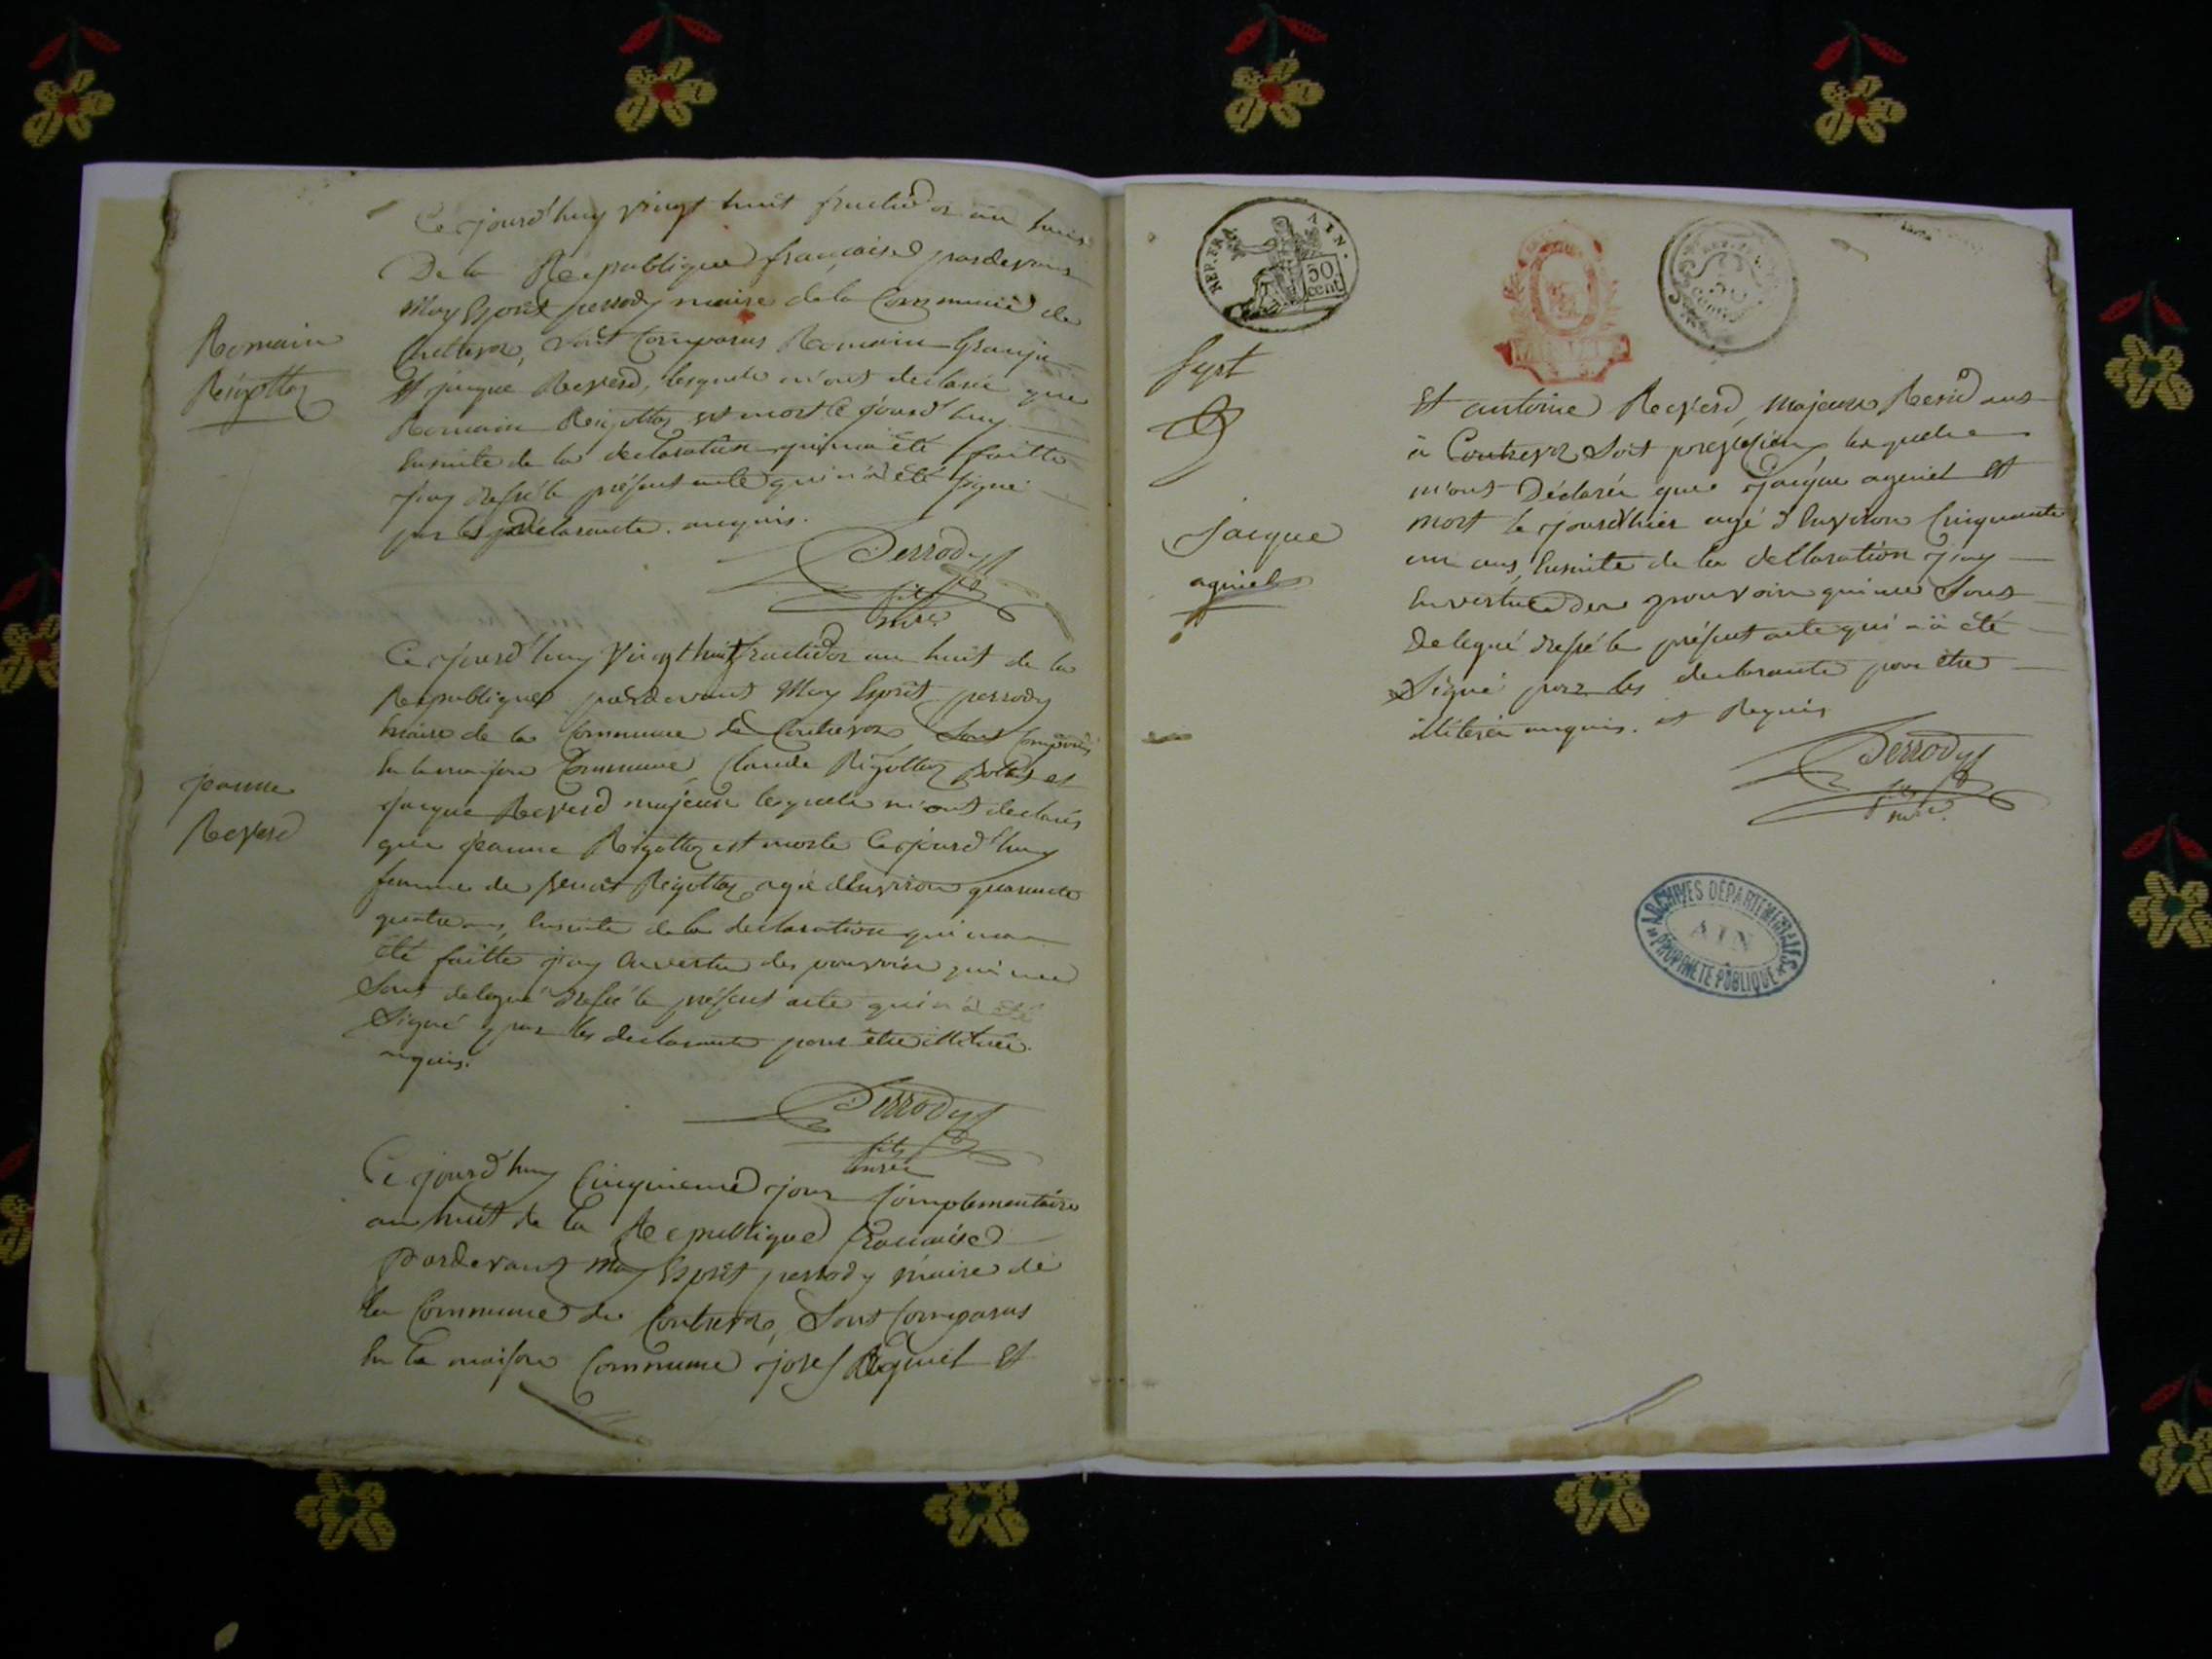 Romain
Reigottaz
Ce jourd'huy vingt huit fructidor an huit
De la Republique française pardevant
Moy Esprit perrody maire de la Commune de
Contrevoz, sont Comparus Romain Grange
Et jaque Reverd, lesquels m'ont declarée que
Romain Reigottaz est mort Ce jourd'huy
Ensuite de la declaration qui m'a été faitte
j'ay dressé le présent acte qui n'a été signé
par les declarants. anquis.
Perrody
fils
mre
Jeanne
Reverd
Ce jourd'huy Vingt huit fructidor an huit de la
Republique pardevant Moy Esprit perrody
maire de la Commune de Contrevoz Sont Comparus
En la maison Commune, Claude Rigottaz et
Jaque Reverd majeurs lesquels m'ont declarés
que jeanne Reigottaz est morte Ce jourd'huy
femme de benoit Reigottaz agée d'Environ quarante
quatre ans, Ensuite de la declaration qui m'a
été faitte j'ay En vertu des pouvoirs qui me
Sont delegué dressé le présent acte qui n'a été
Signé par les declarants pour être illiterés
anquis.
Perrody
fils
mre
Ce jourd'huy Cinquieme jour Complementaire
an huit de la Republique francaise
Pardevant Moy Esprit perrody maire de
la Commune de Contrevoz, Sont Comparus
En la maison Commune josef Aguiel Et
REP. FRA. AIN.
50
cent.
Jacque
aguiel
Et antoine Reverd, majeurs Residants
à Contrevoz lesquels
m'ont Déclarée que Jacque aguiel Est
mort le jourd'hier agé d'Environ Cinquante
un ans, Ensuite de la declaration j'ay
En vertu des pouvoirs qui me Sont
Delegué dressé le présent acte qui n'a été
Signé par les declarants pour être
illiterés anquis. et Requis
Perrody
fils
mre
ARCHIVES DÉPARTEMENTALES
AIN
PROPRIÉTÉ PUBLIQUE